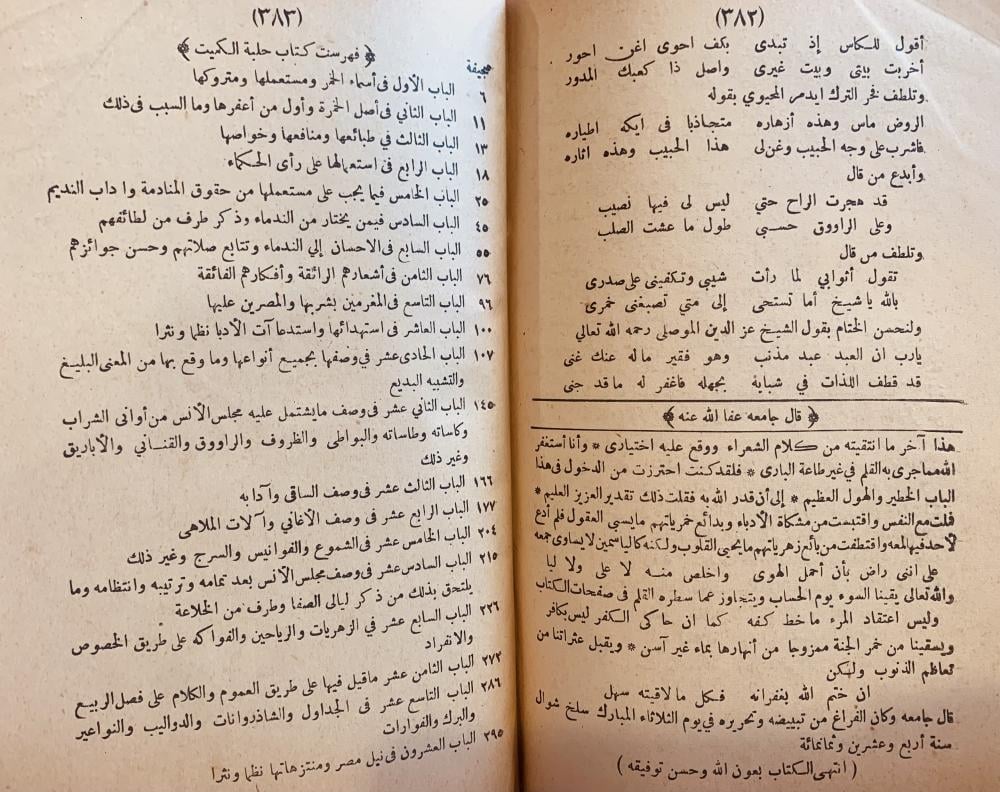 (٣٨٢)
أقول للكاس إذ تبدى بكف احوى اغن احور
أخربت بيتى وبيت غيرى واصل ذا كعبك المدور
وتلطف فخر الترك ايدمر المحيوي بقوله
الروض ماس وهذه أزهاره متجاذبا فى ايكه اطياره
فاشرب على وجه الحبيب وغن لى هذا الحبيب وهذه اثاره
وأبدع من قال
قد هجرت الراح حتي ليس لى فيها نصيب
وعلى الراووق حسبى طول ما عشت الصلب
وتلطف من قال
تقول أثوابي لما رأت شيبى وتكفينى على صدرى
بالله يا شيخ أما تستحى إلى متي تصبغنى خمرى
ولنحسن الختام بقول الشيخ عز الدين الموصلى رحمه الله تعالي
يارب ان العبد عبد مذنب وهو فقير ماله عنك غنى
قد قطف اللذات في شبابة بجهله فاغفر له ما قد جنى
﴿ قال جامعه عفا الله عنه ﴾
هذا آخر ما انتقيته من كلام الشعراء ووقع عليه اختيارى * وأنا أستغفر
الله مما جرى به القلم في غير طاعة البارى * فلقد كنت احترزت من الدخول فى هذا
الباب الخطير والهول العظيم * إلى أن قدر الله به فقلت ذلك تقدير العزيز العليم *
قملت مع النفس واقتبست من مشكاة الأدباء وبدائع خمرياتهم ما يسبى العقول فلم أدع
لأحد فيها لمعه واقتطفت من يائع زهرياتهم ما يحيى القلوب ولكنه كالياسمين لا يساوى جمعه
على اننى راض بأن أحمل الهوى واخلص منه لا على ولا ليا
والله تعالى يقينا السوء يوم الحساب ويتجاوز عما سطره القلم فى صفحات الكتاب
وليس اعتقاد المرء ما خط كفه كما ان حاكى الكفر ليس بكافر
ويسقينا من خمر الجنة ممزوجا من أنهارها بماء غير آسن * ويقبل عثراتنا من
تعاظم الذنوب ولكن
ان ختم الله بغفرانه فكل ما لاقيته سهل
قال جامعه وكان الفراغ من تبييضه وتحريره في يوم الثلاثاء المبارك سلخ شوال
سنة أربع وعشرين وثمانمائة
( انتهى الكتاب بعون الله وحسن توفيقه )
(٣٨٣)
﴿ فهرست كتاب حلبة الكميت ﴾
صحيفة
٦ الباب الأول فى أسماء الخمر ومستعملها ومتروكها
١١ الباب الثاني فى أصل الخمرة وأول من أعفرها وما السبب فى ذلك
١٣ الباب الثالث في طبائعها ومنافعها وخواصها
١٨ الباب الرابع فى استعمالها على رأى الحكماء
٢٥ الباب الخامس فيما يجب على مستعملها من حقوق المنادمة واداب النديم
٤٥ الباب السادس فيمن يختار من الندماء وذكر طرف من لطائفهم
٥٥ الباب السابع فى الاحسان إلي الندماء وتتابع صلاتهم وحسن جوائزهم
٧٦ الباب الثامن فى أشعارهم الرائقة وأفكارهم الفائقة
٩٦ الباب التاسع فى المغرمين بشربها والمصرين عليها
١٠٠ الباب العاشر فى استهدائها واستدعاآت الأدبا نظما ونثرا
١٠٧ الباب الحادى عشر فى وصفها بجميع أنواعها وما وقع بها من المعنى البليغ
والتشبيه البديع
١٤٥ الباب الثاني عشر فى وصف ما يشتمل عليه مجلس الأنس من أوانى الشراب
وكاساته وطاساته والبواطى والظروف والراووق والقنانى والأباريق
وغير ذلك
١٦٦ الباب الثالث عشر فى وصف الساقى وآدابه
١٧٧ الباب الرابع عشر فى وصف الأغاني وآلات الملاهى
٢٠٤ الباب الخامس عشر فى الشموع والفوانيس والسرج وغير ذلك
٢١٥ الباب السادس عشر فى وصف مجلس الأنس بعد تمامه وترتيبه وانتظامه وما
يلتحق بذلك من ذكر ليالى الصفا وطرف من الخلاعة
٢٢٦ الباب السابع عشر في الزهريات والرياحين والفواكه على طريق الخصوص
والانفراد
٢٧٢ الباب الثامن عشر ماقيل فيها على طريق العموم والكلام على فصل الربيع
٢٨٦ الباب التاسع عشر فى الجداول والشاذروانات والدواليب والنواعير
والبرك والفوارات
٢٩٥ الباب العشرون فى نيل مصر ومنتزهاتها نظما ونثرا